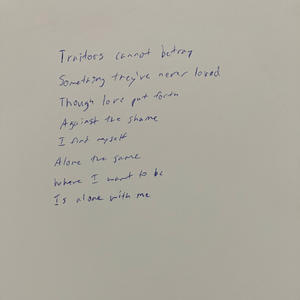 Traitors cannot betray
Something they've never loved
Though love put forth
Against the shame
I find myself
Alone the same
Where I want to be
Is alone with me